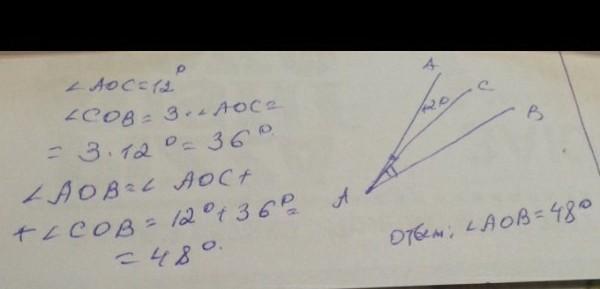 ∠AOC=12°
∠COB=3·∠AOC=
=3·12°=36°.
∠AOB=∠AOC+
+∠COB=12°+36°=
=48°.
A
C
12°
B
A
Ответ: ∠AOB=48°